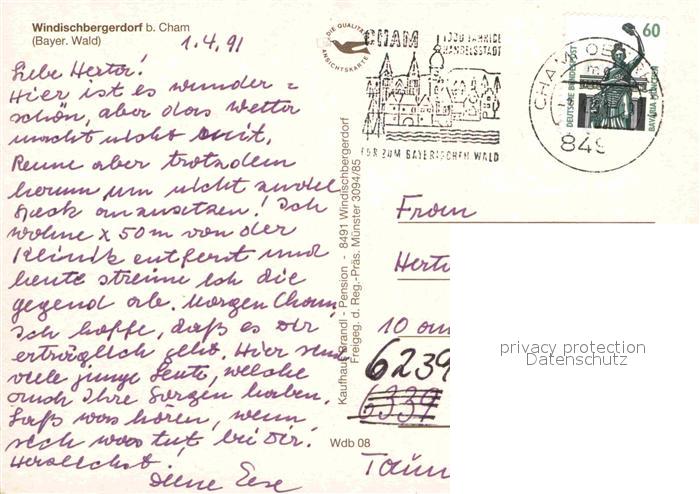 Windischbergerdorf b. Cham
(Bayer. Wald)
1.4.91
Liebe Herta!
Hier ist es wunder=
schön, aber das Wetter
macht nicht mit.
Renne aber trotzdem
herum um nicht zuviel
Speck anzusetzen! Ich
wohne x 50 m von der
Klinik entfernt und
heute streune ich die
gegend ab. Morgen Cham,
ich hoffe, daß es dir
erträglich geht. Hier sind
viele junge Leute, welche
auch Ihre Sorgen haben.
Laß was hören, wenn
sich was tut, bei Dir!
Herzlichst
Deine
DIE QUALITÄTS
ANSICHTSKARTE
CHAM
JÄHRIGE
HANDELSSTADT
TOR ZUM BAYERISCHEN WALD
CHAM
849
60
DEUTSCHE BUNDESPOST
BAVARIA MÜNCHEN
Kaufhaus Brandl - Pension - 8491 Windischbergerdorf
Freigeg. d. Reg.-Präs. Münster 3094/85
Wdb 08
Frau
Herta
10 am
6239
6337
Taun
privacy protection
Datenschutz